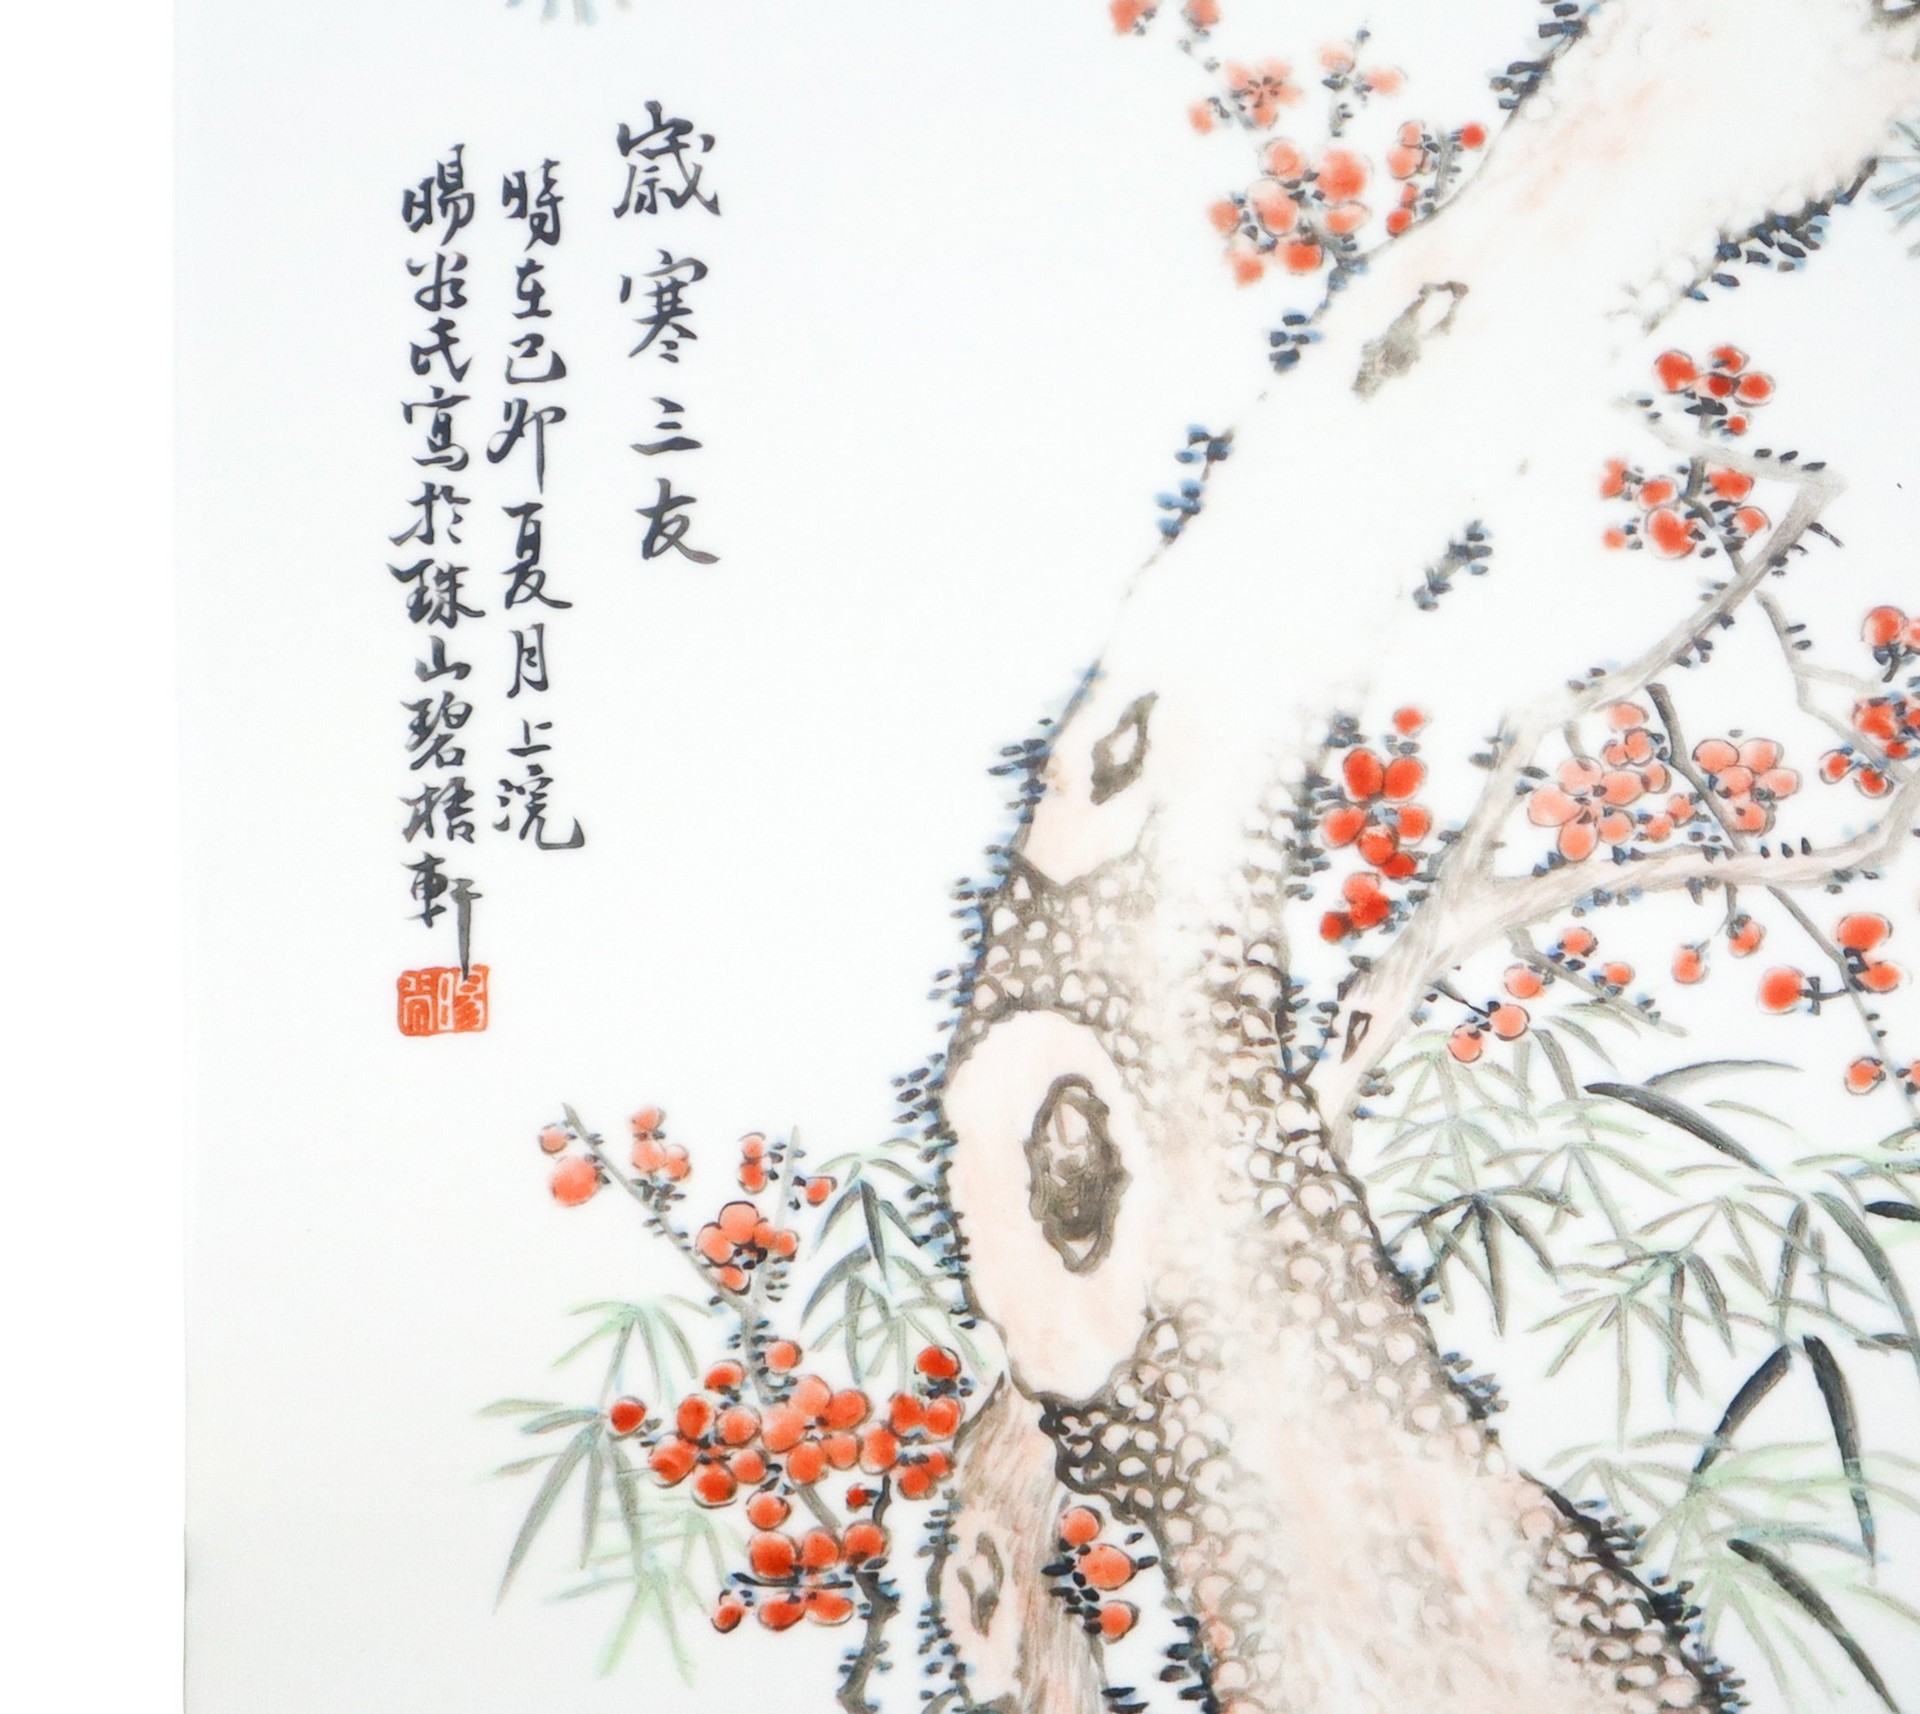 歲寒三友
時在己卯夏月上浣
暘谷氏寫於珠山碧梧軒